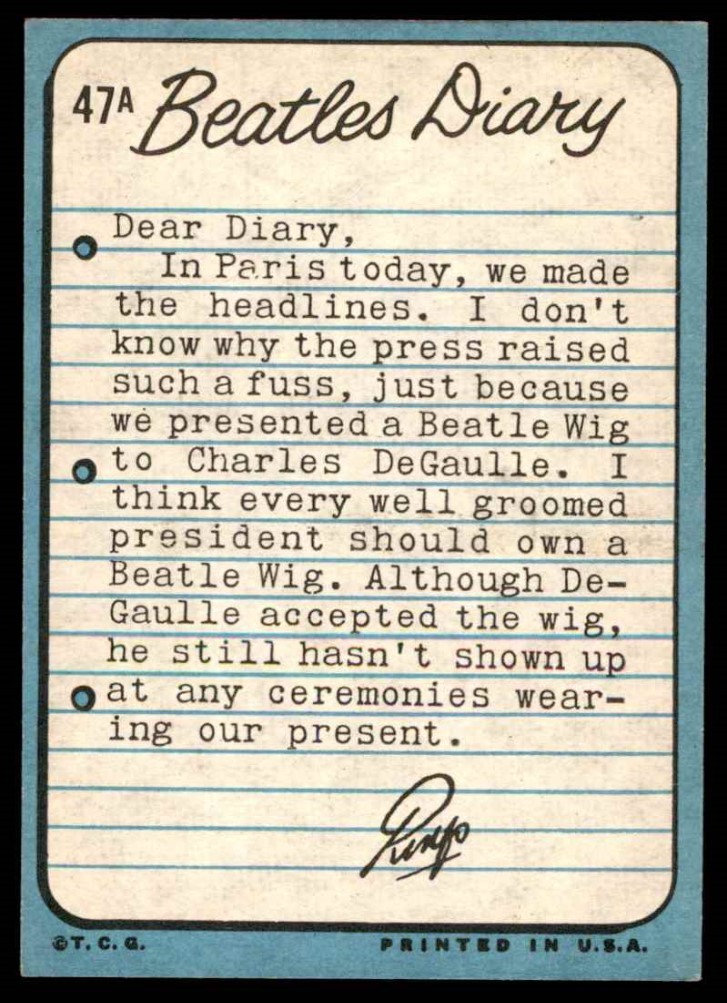 47A Beatles Diary
Dear Diary,
In Paris today, we made
the headlines. I don't
know why the press raised
such a fuss, just because
we presented a Beatle Wig
to Charles DeGaulle. I
think every well groomed
president should own a
Beatle Wig. Although De-
Gaulle accepted the wig,
he still hasn't shown up
at any ceremonies wear-
ing our present.
Ringo
©T.C.G. PRINTED IN U.S.A.